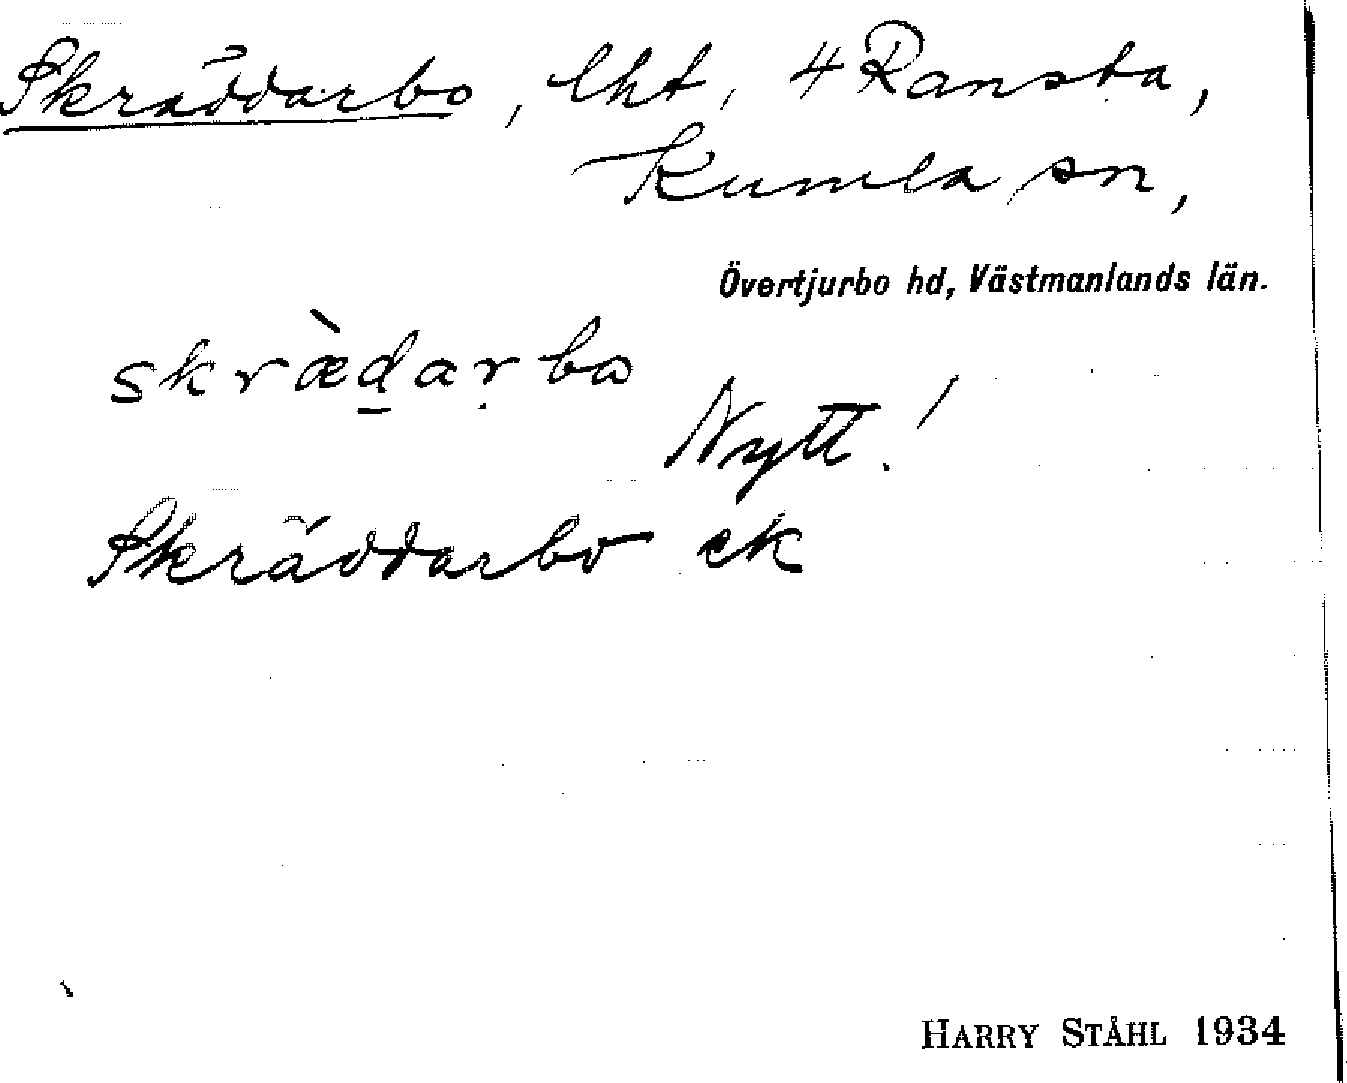 Skräddarbo, lht, 4 Ransta,
Kumla sn,
Övertjurbo hd, Västmanlands län.
skræ̀d̲arbo
Nytt!
Skräddarbo ek
HARRY STÅHL 1934